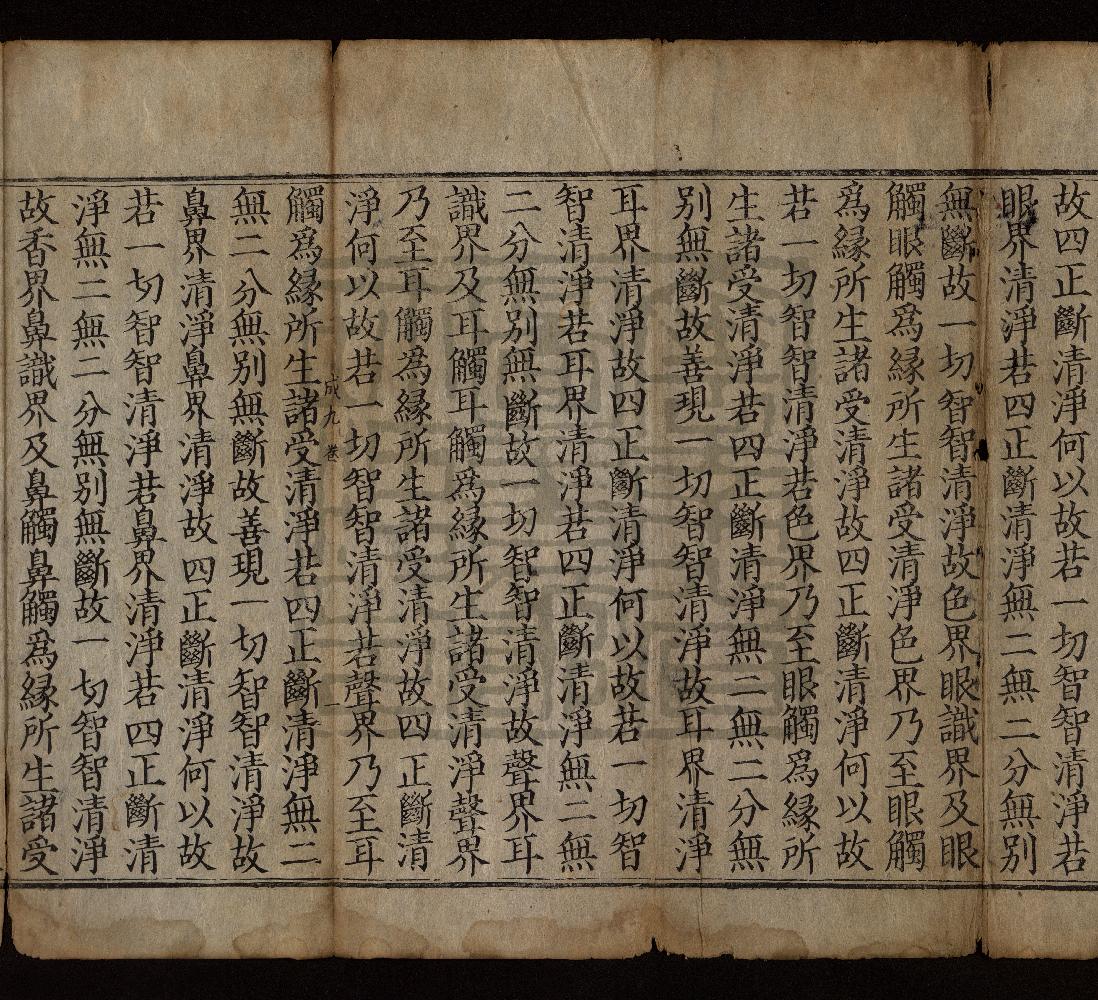 故四正斷清淨何以故若一切智智清淨若
眼界清淨若四正斷清淨無二無二分無别
無斷故一切智智清淨故色界眼識界及眼
觸眼觸為緣所生諸受清淨色界乃至眼觸
為緣所生諸受清淨故四正斷清淨何以故
若一切智智清淨若色界乃至眼觸為緣所
生諸受清淨若四正斷清淨無二無二分無
别無斷故善現一切智智清淨故耳界清淨
耳界清淨故四正斷清淨何以故若一切智
智清淨若耳界清淨若四正斷清淨無二無
二分無别無斷故一切智智清淨故聲界耳
識界及耳觸耳觸為緣所生諸受清淨聲界
乃至耳觸為緣所生諸受清淨故四正斷清
淨何以故若一切智智清淨若聲界乃至耳
成九卷 一
觸為緣所生諸受清淨若四正斷清淨無二
無二分無别無斷故善現一切智智清淨故
鼻界清淨鼻界清淨故四正斷清淨何以故
若一切智智清淨若鼻界清淨若四正斷清
淨無二無二分無别無斷故一切智智清淨
故香界鼻識界及鼻觸鼻觸為緣所生諸受